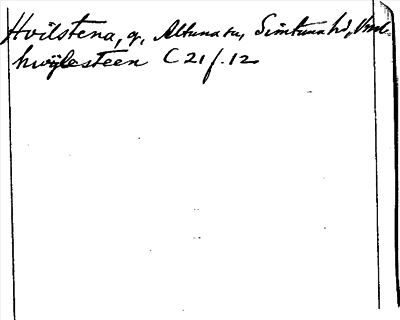 Hvilstena, g, Altuna sn, Simtuna hd, Uml.
hwÿlesteen C 21 f. 12